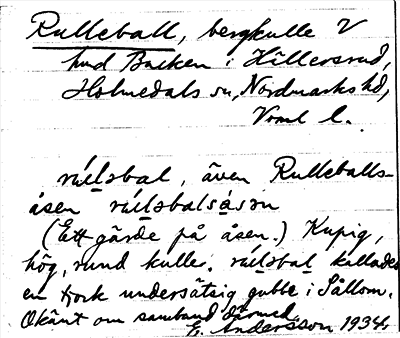 Rulleball, bergkulle V
hmd Backen i Hillersrud,
Holmedals sn, Nordmarks hd,
Vrml l.
rúlsbal, även Rulleballs-
åsen rúlsbalsåsn
(Ett gärde på åsen.) Kupig,
hög, rund kulle. rúlsbal kallades
en tjock undersätsig gubbe i Sållom.
Okänt om samband därmed.
E. Andersson 1934.